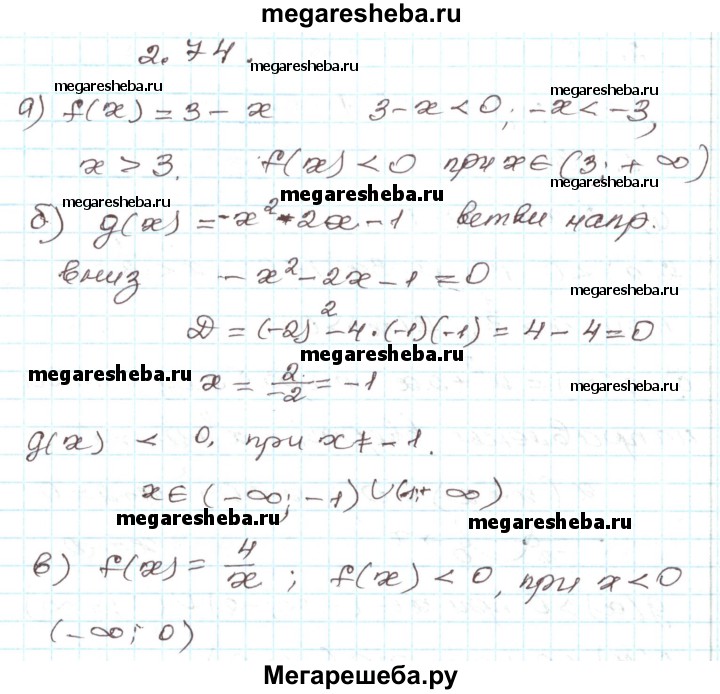 megaresheba.ru
2.74.
megaresheba.ru
megaresheba.ru megaresheba.ru
а) f(x) = 3 - x 3 - x < 0; -x < -3,
x > 3. f(x) < 0 при x ∈ (3; + ∞)
megaresheba.ru
megaresheba.ru
megaresheba.ru
б) g(x) = -x² - 2x - 1 ветви напр.
вниз - x² - 2x - 1 = 0
megaresheba.ru
D = (-2)² - 4·(-1)(-1) = 4 - 4 = 0
megaresheba.ru
megaresheba.ru x = 2/-2 = -1 megaresheba.ru
g(x) < 0, при x ≠ -1.
x ∈ (-∞; -1) ∪ (-1; + ∞)
megaresheba.ru megaresheba.ru
в) f(x) = 4/x ; f(x) < 0, при x < 0
(-∞; 0)
Мегарешеба.ру